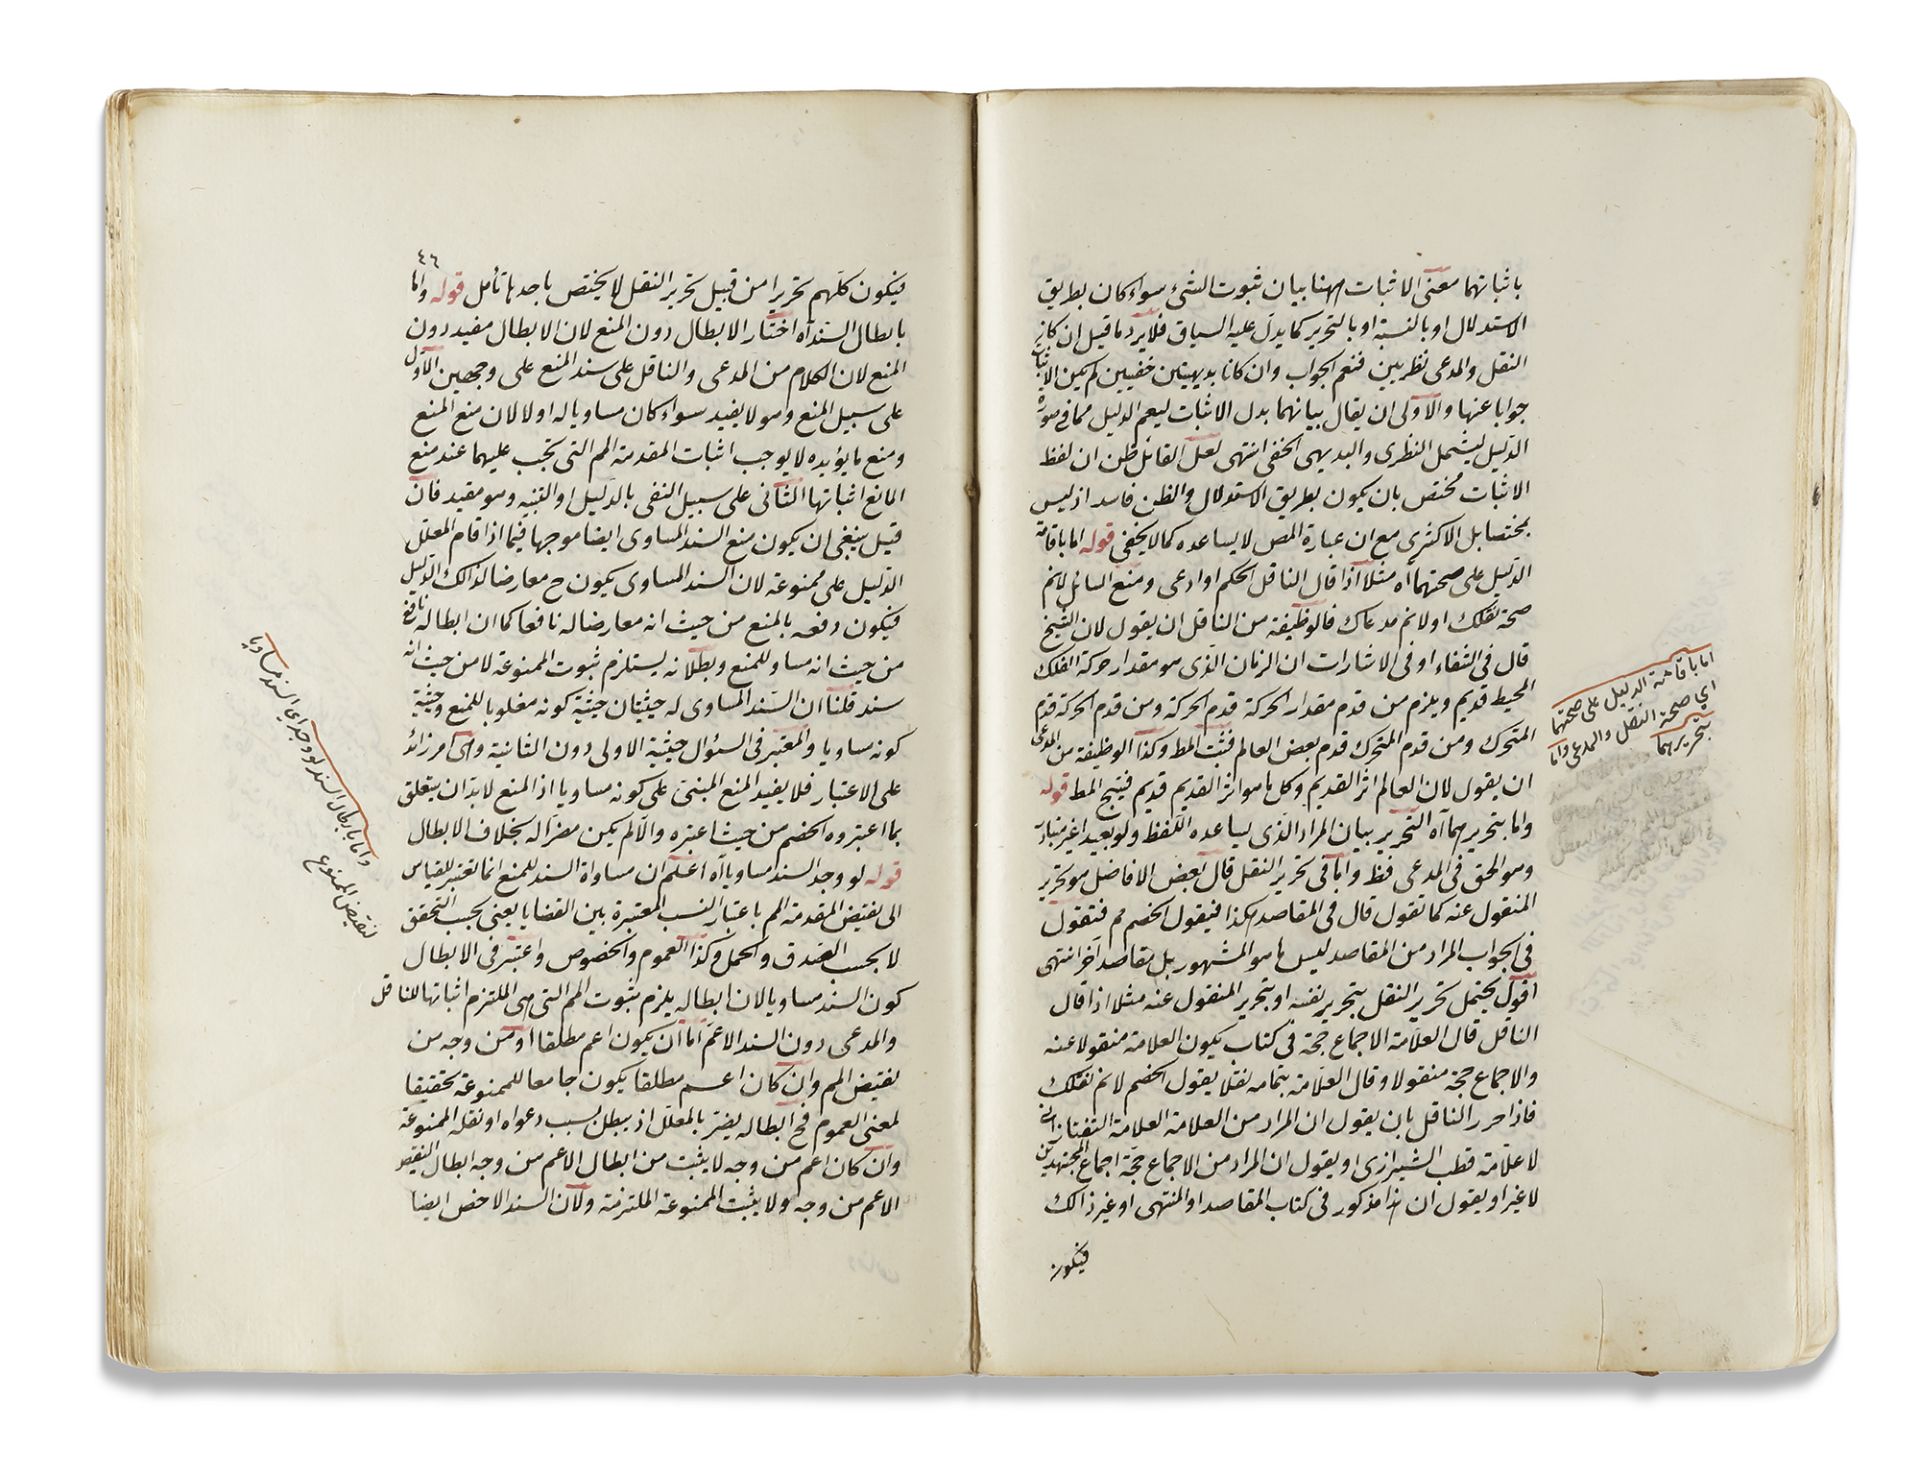 باثباتهما معنى الاثبات ههنا بيان ثبوت الشئ سواء كان بطريق
الاستدلال او بالنسبة او بالتحرير كما يدل عليه السياق فلا يرد ما قيل ان كان
النقل والمدعى نظريين فنعم الجواب وان كانا بديهيين خفيين لم يكن الاثبات
جوابا عنها والاولى ان يقال بيانهما بدل الاثبات ليعم الدليل مما فى صورة
الدليل ليشمل النظرى والبديهى الخفى انتهى لعل القائل ظن ان لفظ
الاثبات مختص بان يكون بطريق الاستدلال والظن فاسد اذ ليس
بمختص بل الاكثرى مع ان عبارة المص لا يساعده كما لا يخفى قوله اما باقامة
الدليل على صحتهما آه مثلا اذا قال الناقل الحكم او ادعى ومنع السائل لانم
صحة نقلك او لانم مدعاك فالوظيفة من الناقل ان يقول لان الشيخ
قال فى الشفاء او فى الاشارات ان الزمان الذى هو مقدار حركة الفلك
المحيط قديم ويلزم من قدم مقدار الحركة قدم الحركة ومن قدم الحركة قدم
المتحرك ومن قدم المتحرك قدم بعض العالم فثبت المط وكذا الوظيفة من المدعى
ان يقول لان العالم اثر القديم وكل ما هو اثر القديم قديم فينتج المط قوله
واما بتحريرهما آه التحرير بيان المراد الذى يساعده اللفظ ولو بعيدا غير متبادر
وهو الحق فى المدعى فظ واما فى تحرير النقل قال بعض الافاضل هو تحرير
المنقول عنه كما تقول قال فى المقاصد هكذا فيقول الخصم مم فتقول
فى الجواب المراد من المقاصد ليس ما هو المشهور بل مقاصد آخر انتهى
اقول يحتمل تحرير النقل بتحرير نفسه او بتحرير المنقول عنه مثلا اذا قال
الناقل قال العلامة الاجماع حجة فى كتاب يكون العلامة منقولا عنه
والاجماع حجة منقولا وقال العلامة بتمامه نقلا يقول الخصم لانم نقلك
فاذا حرر الناقل بان يقول ان المراد من العلامة العلامة التفتازانى
لا علامة قطب الشيرازى او يقول ان المراد من الاجماع حجة اجماع المجتهدين
لا غير او يقول ان هذا مذكور فى كتاب المقاصد او المنتهى او غير ذالك
فيكون
اما باقامة الدليل على صحتهما
اى صحة النقل والمدعى واما
بتحريرهما
٤٦
فيكون كلهم تحريرا من قبيل تحرير النقل لا يختص باحدها تأمل قوله واما
بابطال السند آه اختار الابطال دون المنع لان الابطال مفيد دون
المنع لان الكلام من المدعى والناقل على سند المنع على وجهين الاول
على سبيل المنع وهو لا يفيد سواء كان مساويا له اولا لان منع المنع
ومنع ما يؤيده لا يوجب اثبات المقدمة المم التى تجب عليهما عند منع
المانع اثباتها الثانى على سبيل النفى بالدليل او التنبيه وهو مفيد فان
قيل ينبغى ان يكون منع السند المساوى ايضا موجها فيما اذا قام المعلل
الدليل على ممنوعة لان السند المساوى يكون ح معارضا لذالك الدليل
فيكون دفعه بالمنع من حيث انه معارضا له نافعا كما ان ابطاله نافع
من حيث انه مساو للمنع وبطلانه يستلزم ثبوت الممنوعة لا من حيث انه
سند قلنا ان السند المساوى له حيثيتان حيثية كونه مغلوبا للمنع وحيثية
كونه مساويا والمعتبر فى السؤال حيثية الاولى دون الثانية وهى امر زائد
على الاعتبار فلا يفيد المنع المبنى على كونه مساويا اذ المنع لابد ان يتعلق
بما اعتبروه الخصم من حيث اعتبره والا لم يكن مضرا له بخلاف الابطال
قوله لو وجد السند مساويا آه اعلم ان مساواة السند للمنع انما تعتبر للقياس
الى نقيض المقدمة المم باعتبار النسب المعتبرة بين القضايا يعنى بحسب التحقق
لا بحسب الصدق والحمل وكذا العموم والخصوص واعتبر فى الابطال
كون السند مساويا لان ابطاله يلزم بثبوت المم التى هى الملتزم اثباتها للناقل
والمدعى دون السند الاعم اما ان يكون اعم مطلقا او من وجه من
نقيض المم وان كان اعم مطلقا يكون جامعا للممنوعة تحقيقا
لمعنى العموم فح ابطاله يضر بالمعلل اذ يبطل بسبب دعواه او نقله الممنوعة
وان كان اعم من وجه لا يثبت من ابطال الاعم من وجه ابطال النقيض
الاعم من وجه ولا يثبت الممنوعة الملتزمة ولان السند الاخص ايضا
واما بابطال السند لو وجد اى السند مساويا
لنقيض الممنوع